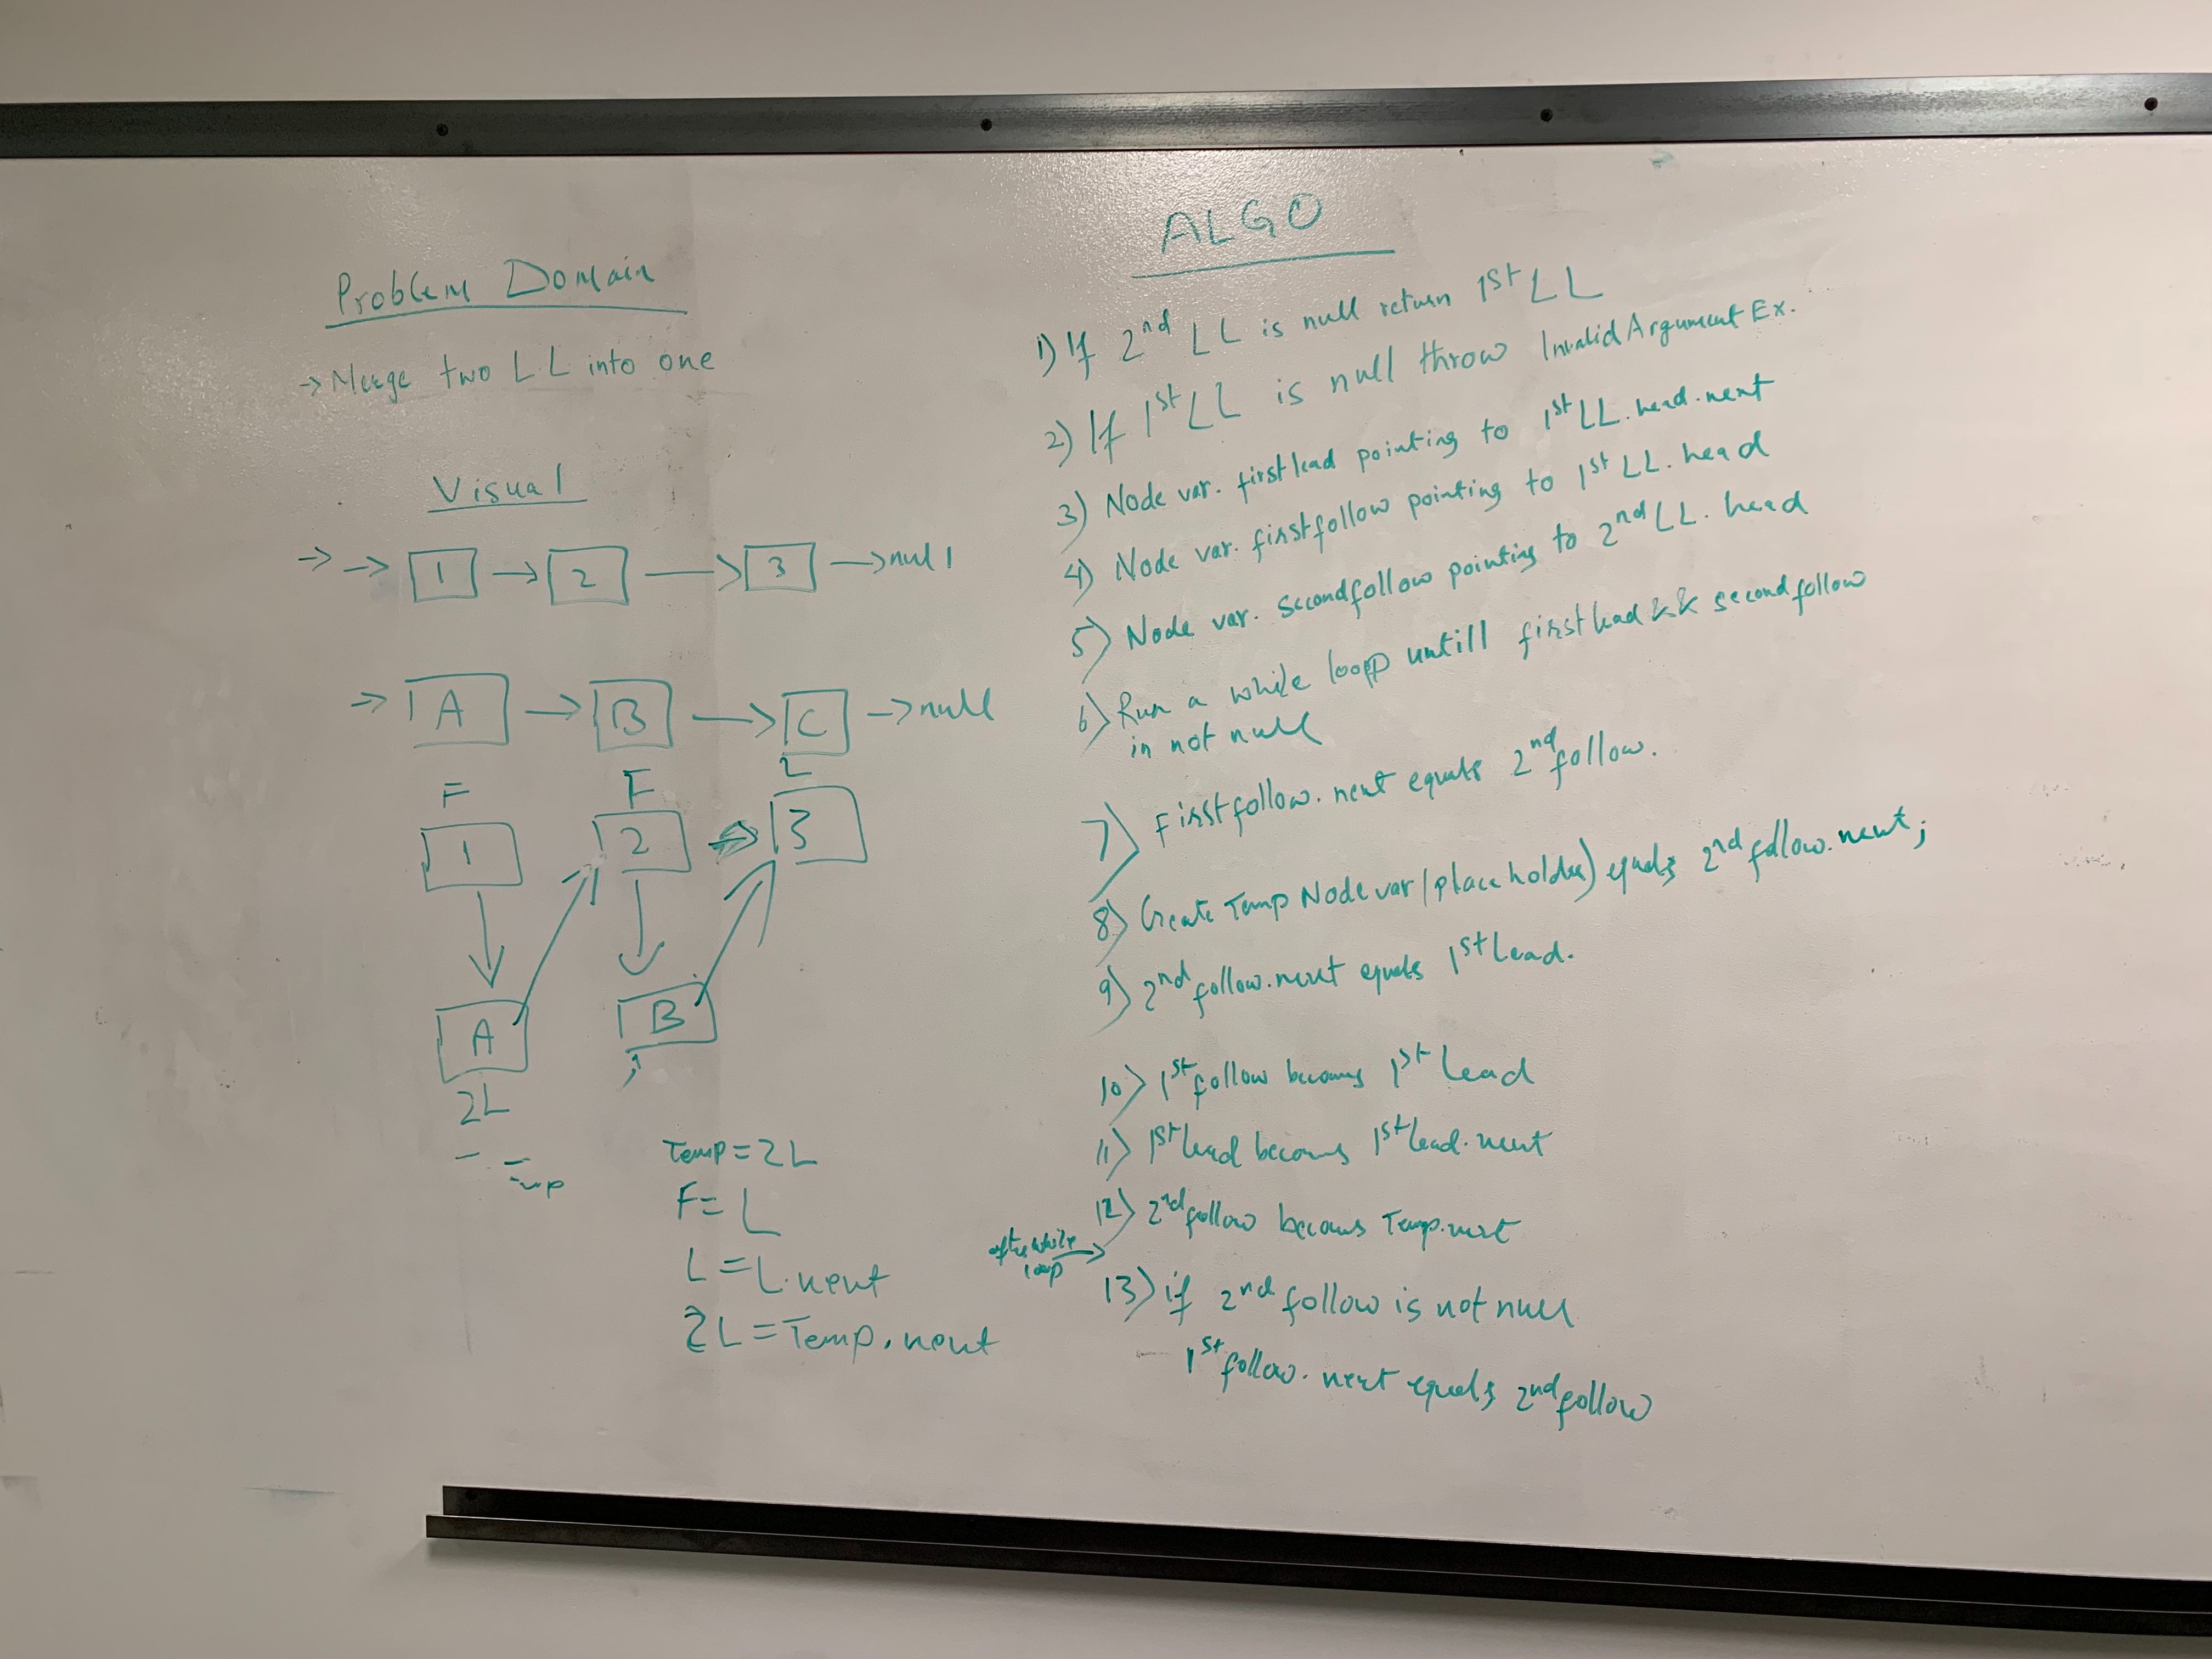 Problem Domain
→ Merge two LL into one
Visual
→ → 1 → 2 → 3 → null
→ A → B → C → null
F F L
1 2 → 3
A B
2L
Temp = 2L
F = L
L = L.next
2L = Temp.next
ALGO
1) If 2nd LL is null return 1st LL
2) If 1st LL is null throw Invalid Argument Ex.
3) Node var. firstlead pointing to 1st LL.head.next
4) Node var. firstfollow pointing to 1st LL.head
5) Node var. secondfollow pointing to 2nd LL.head
6) Run a while loop untill firstlead && secondfollow
in not null
7) Firstfollow.next equals 2nd follow.
8) Create Temp Node var (placeholder) equals 2nd follow.next;
9) 2nd follow.next equals 1st Lead.
10) 1st follow becomes 1st Lead
11) 1st lead becomes 1st lead.next
12) 2nd follow becomes Temp.next
after while
loop →
13) if 2nd follow is not null
1st follow.next equals 2nd follow